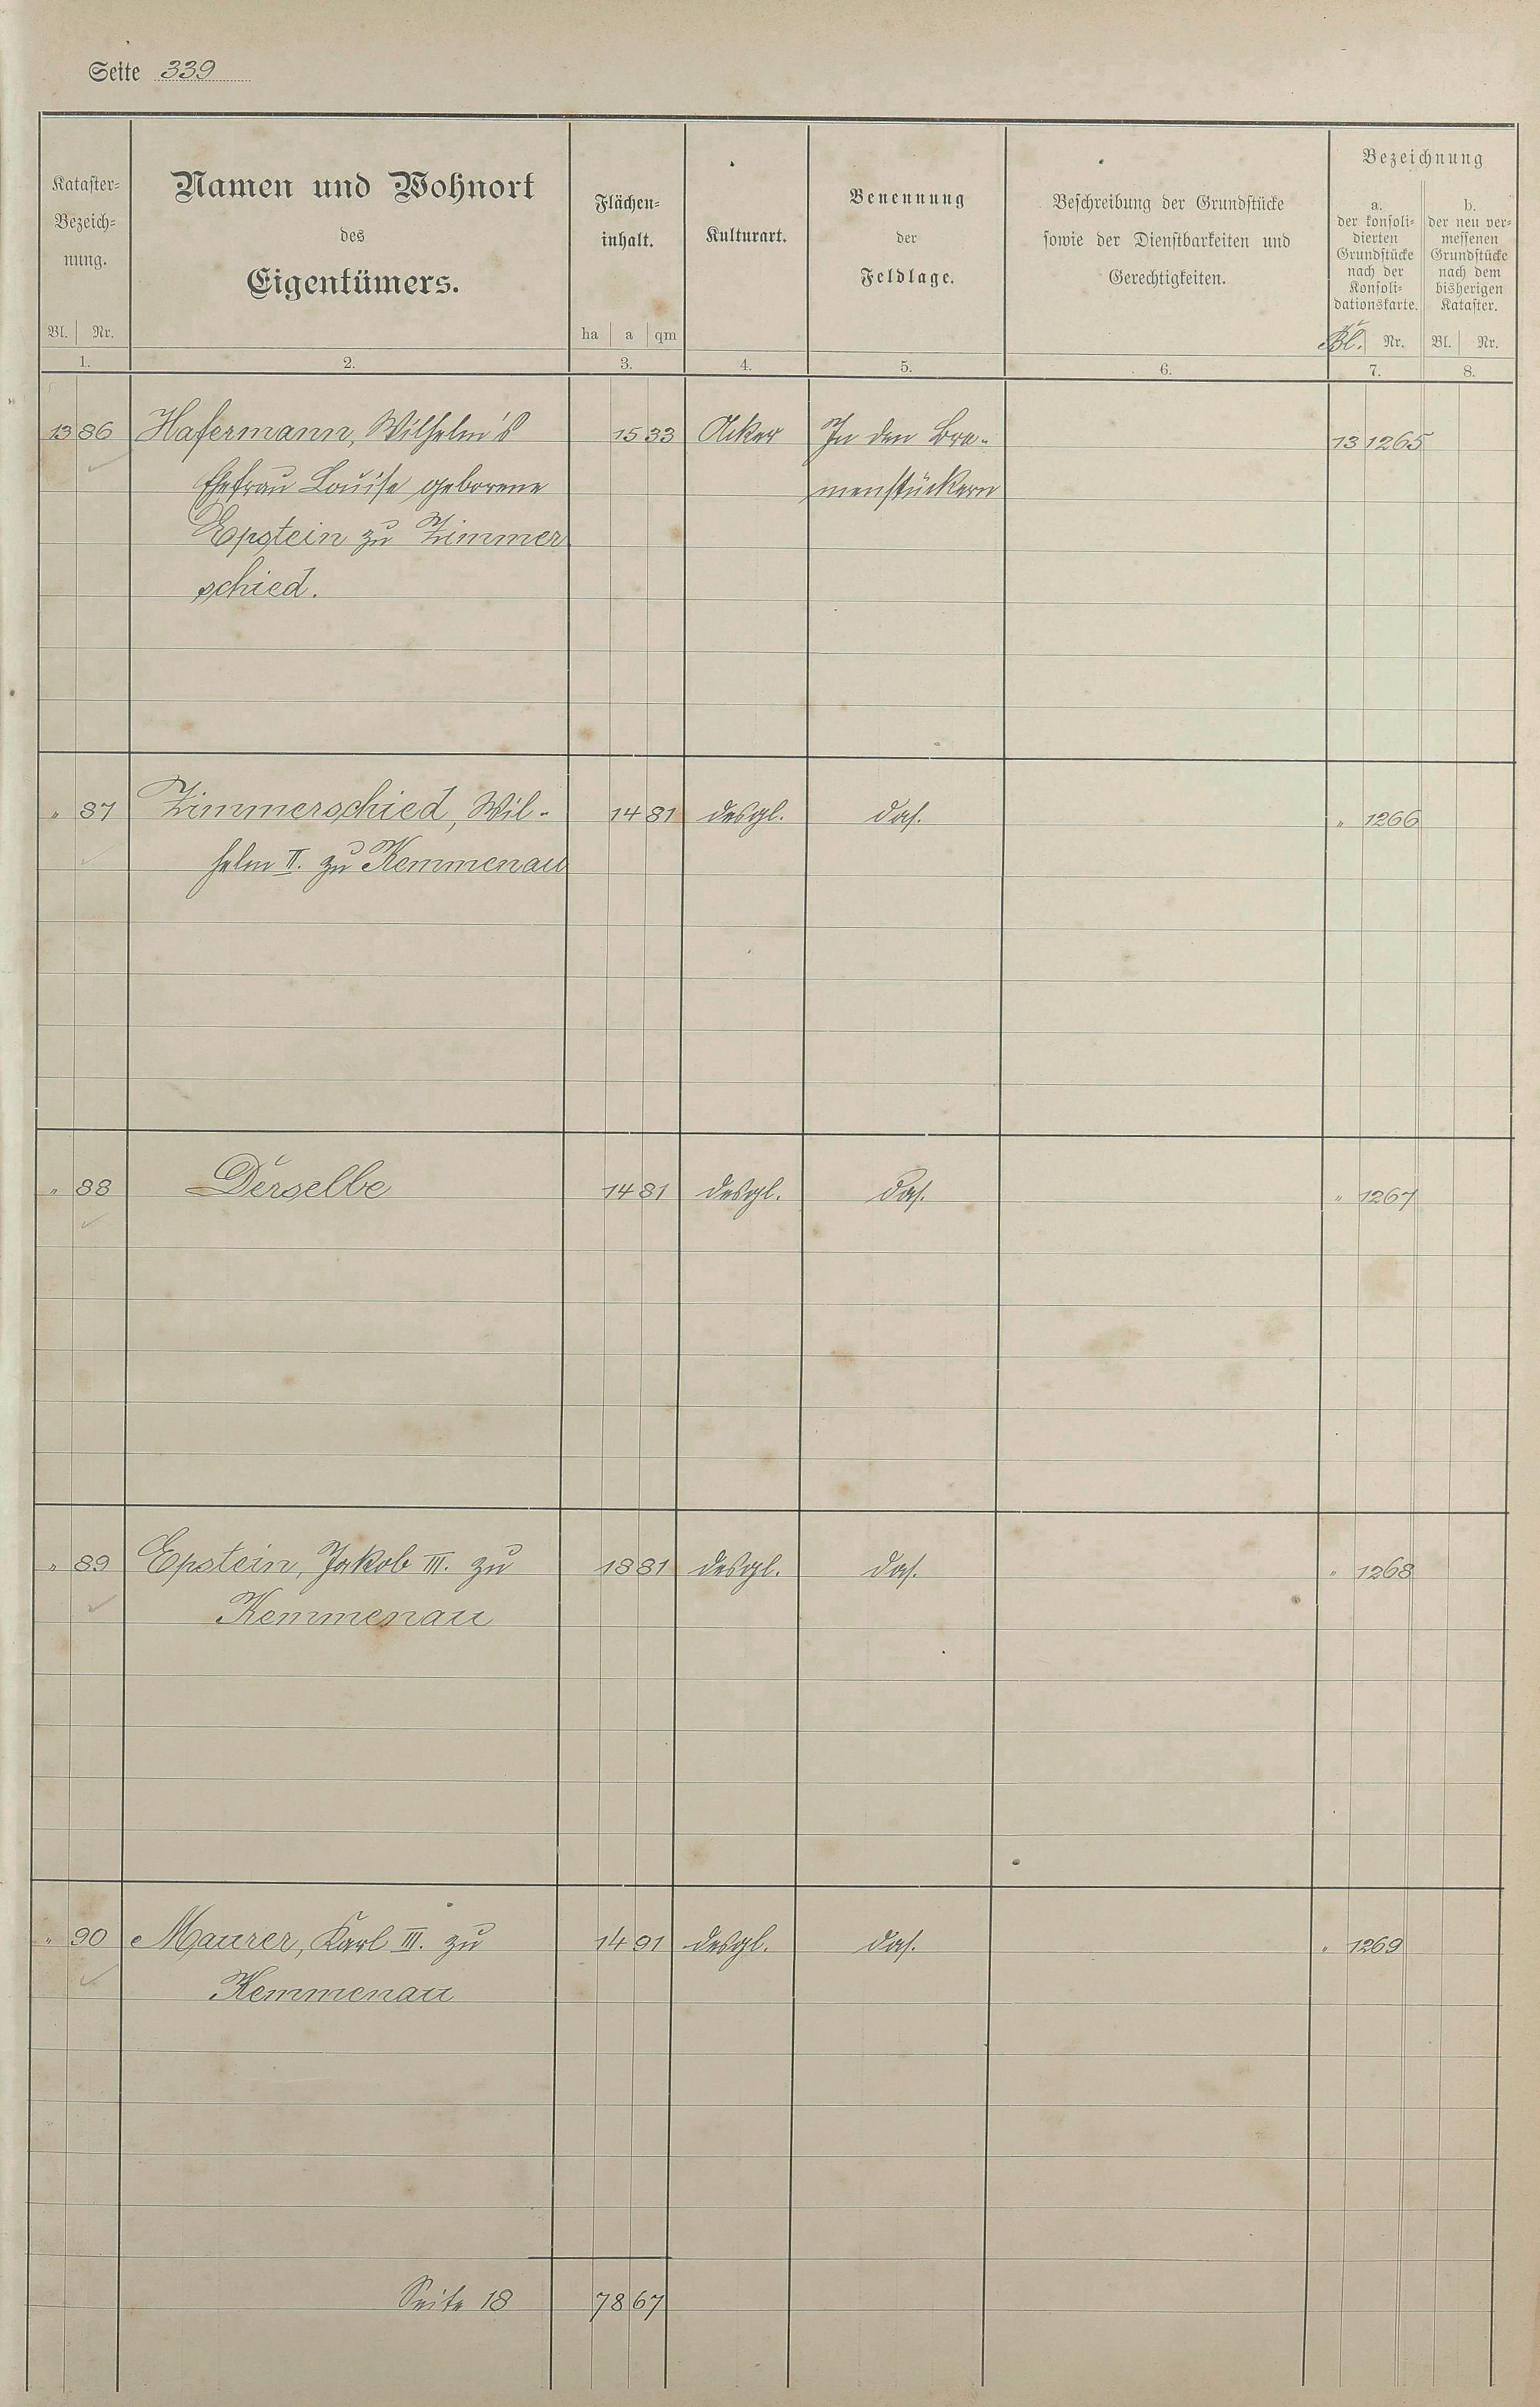 Seite 339
Kataster-
Bezeich-
nung.
Bl. Nr.
1.
Namen und Wohnort
des
Eigentümers.
2.
Flächen-
inhalt.
ha a qm
3.
Kulturart.
4.
Benennung
der
Feldlage.
5.
Beschreibung der Grundstücke
sowie der Dienstbarkeiten und
Gerechtigkeiten.
6.
Bezeichnung
a.
der konsoli-
dierten
Grundstücke
nach der
Konsoli-
dationskarte.
Bl. Nr.
7.
b.
der neu ver-
messenen
Grundstücke
nach dem
bisherigen
Kataster.
Bl. Nr.
8.
13 86 Hafermann, Wilhelm's 15 33 Acker In den Bra- 13 1265
Ehefrau Louise geborene menstückern
Epstein zu Zimmer
schied.
" 87 Zimmerschied, Wil- 14 81 desgl. das. " 1266
helm II. zu Kemmenau
" 88 Derselbe 14 81 desgl. das. " 1267
" 89 Epstein, Jakob III. zu 18 81 desgl. das. " 1268
Kemmenau
" 90 Maurer, Karl III. zu 14 91 desgl. das. " 1269
Kemmenau
Seite 18 78 67